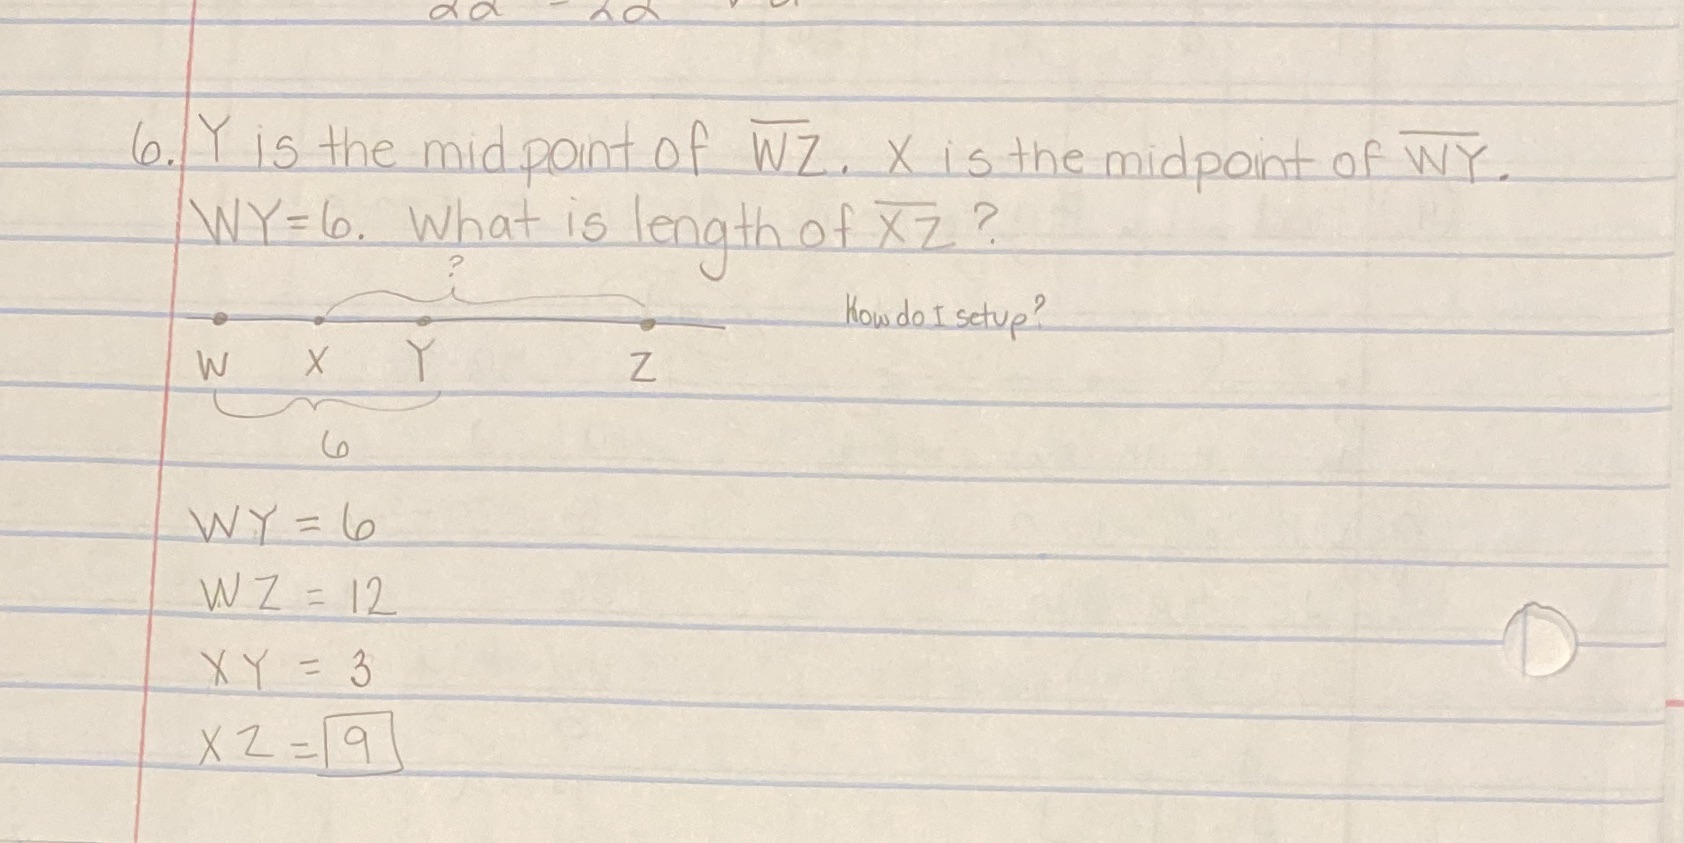 6. Y is the midpoint of W̅Z̅. X is the midpoint of W̅Y̅.
WY=6. What is length of X̅Z̅?
?
How do I setup?
W X Y Z
6
WY = 6
WZ = 12
XY = 3
XZ = 9